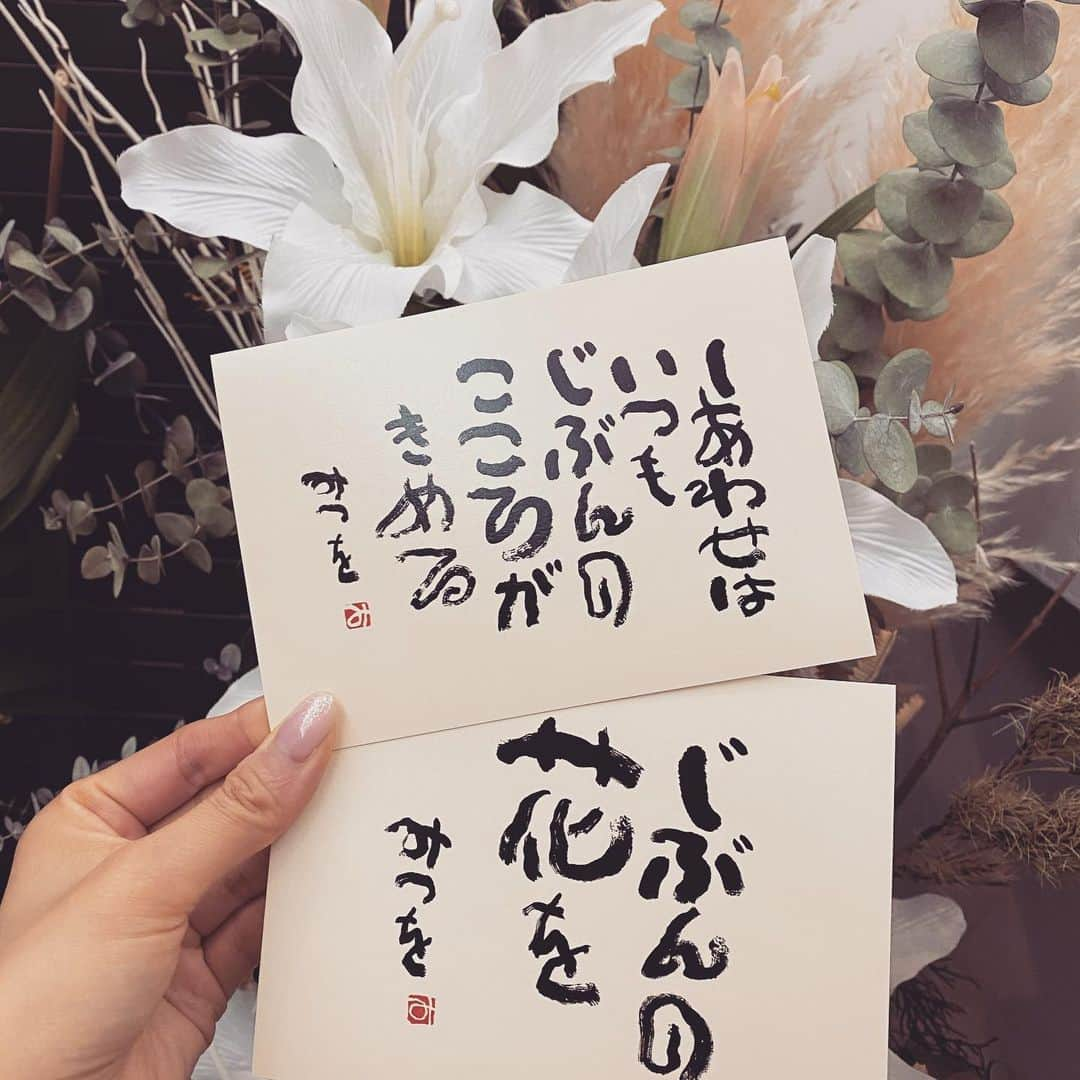 しあわせは
いつも
じぶんの
こころが
きめる
みつを
じぶんの
花を
みつを